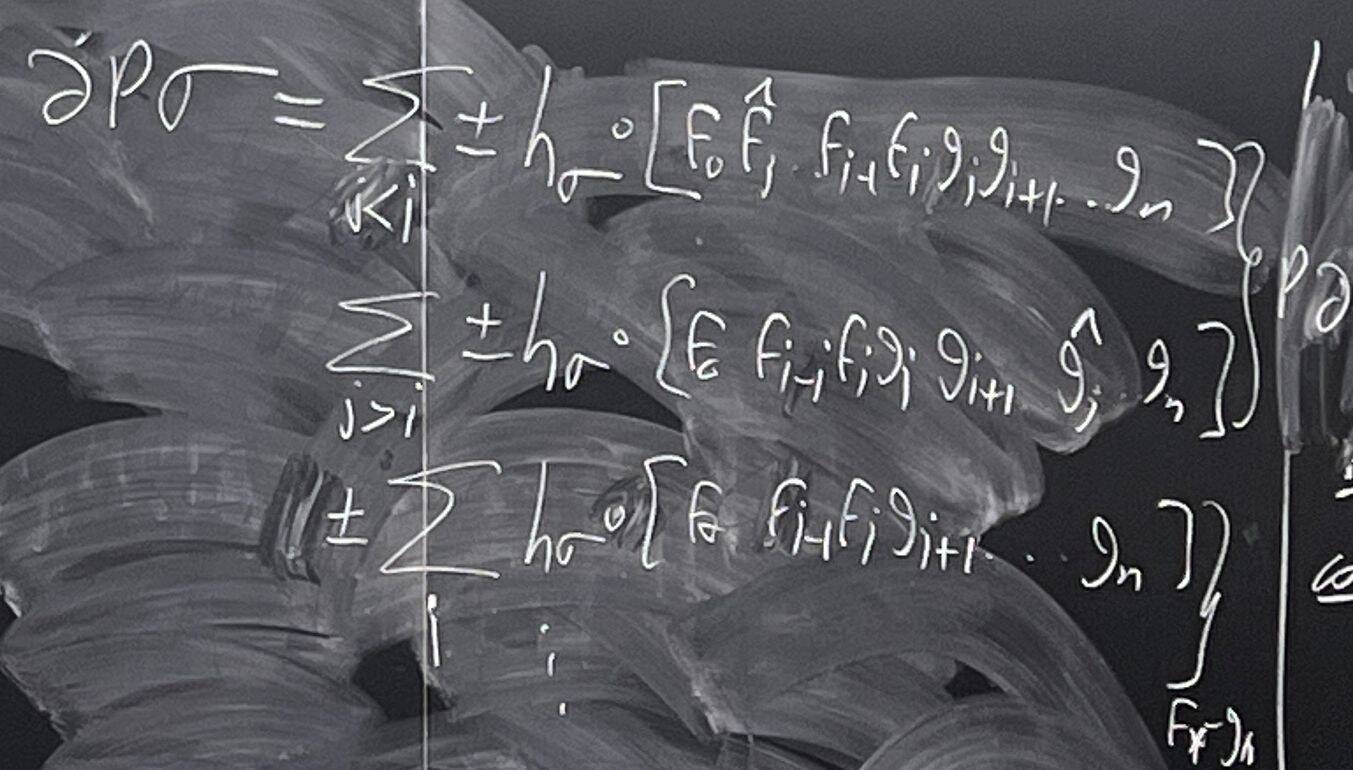 ∂Pσ = ∑ ± h_σ ∘ [f_0 f̂_j .. f_{i-1} f_i g_i g_{i+1} ... g_n ] }
j<i
∑ ± h_σ ∘ [f_0 f_{i-1} f_i g_i g_{i+1} ĝ_j g_n ] } P∂
j>i
± ∑ h_σ ∘ [f_0 f_{i-1} f_i g_{i+1} ... g_n ] }
i
f_* - g_*